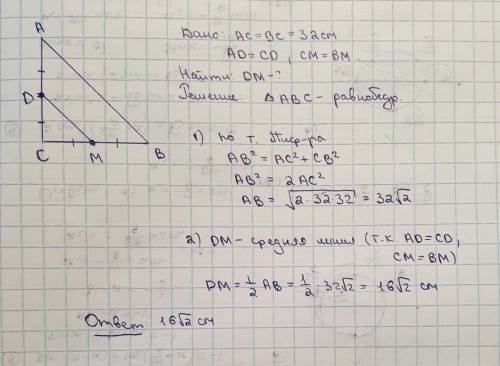 A
D
C
M
B
Дано: AC = BC = 32 см
AD = CD, CM = BM
Найти: DM - ?
Решение: △ABC - равнобедр.
1) по т. Пиф-ра
AB² = AC² + CB²
AB² = 2AC²
AB = √2·32·32 = 32√2
2) DM - средняя линия (т.к. AD = CD,
CM = BM)
DM = 1/2 AB = 1/2 · 32√2 = 16√2 см
Ответ: 16√2 см